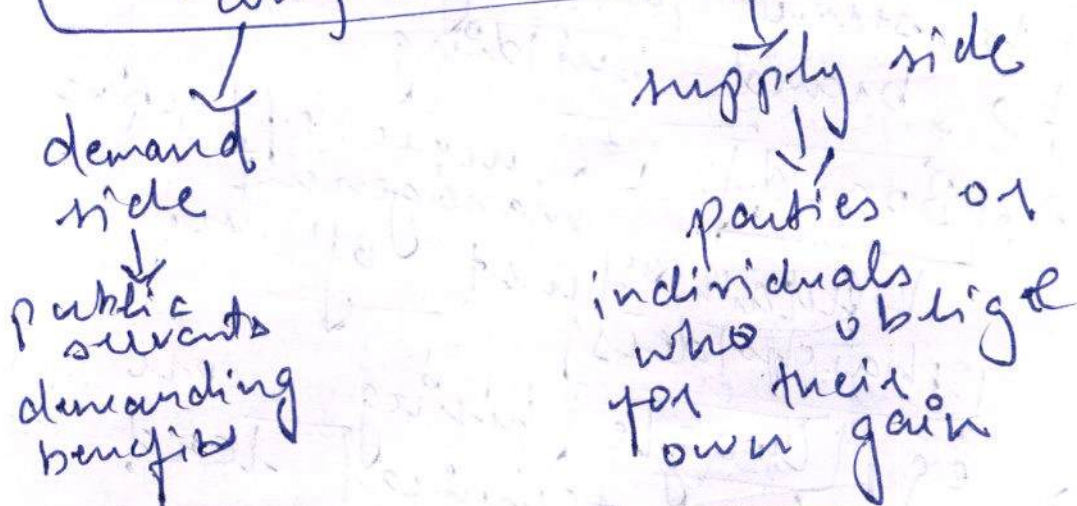 demand
side
public
servants
demanding
benefits
supply side
parties or
individuals
who oblige
for their
own gain